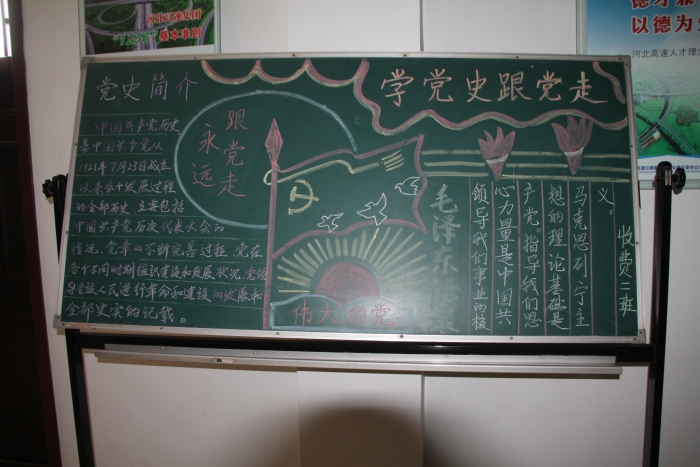 河北高速集团
基本准则
以德为
河北高速人才理念
党史简介
学党史跟党走
跟党走
永远
中国共产党历史
是中国共产党从
1921年7月23日成立
以来各个发展过程
的全部历史主要包括
中国共产党历次代表大会的
情况,党章的不断完善过程,党在
各个不同时期组织建设和发展状况,党领
导全人民进行革命和建设的发展和
全部史实的记载。
毛泽东
伟大的党
领导我们事业的核
心力量是中国共
产党。指导我们思
想的理论基础是
马克思列宁主
义。
收费二班